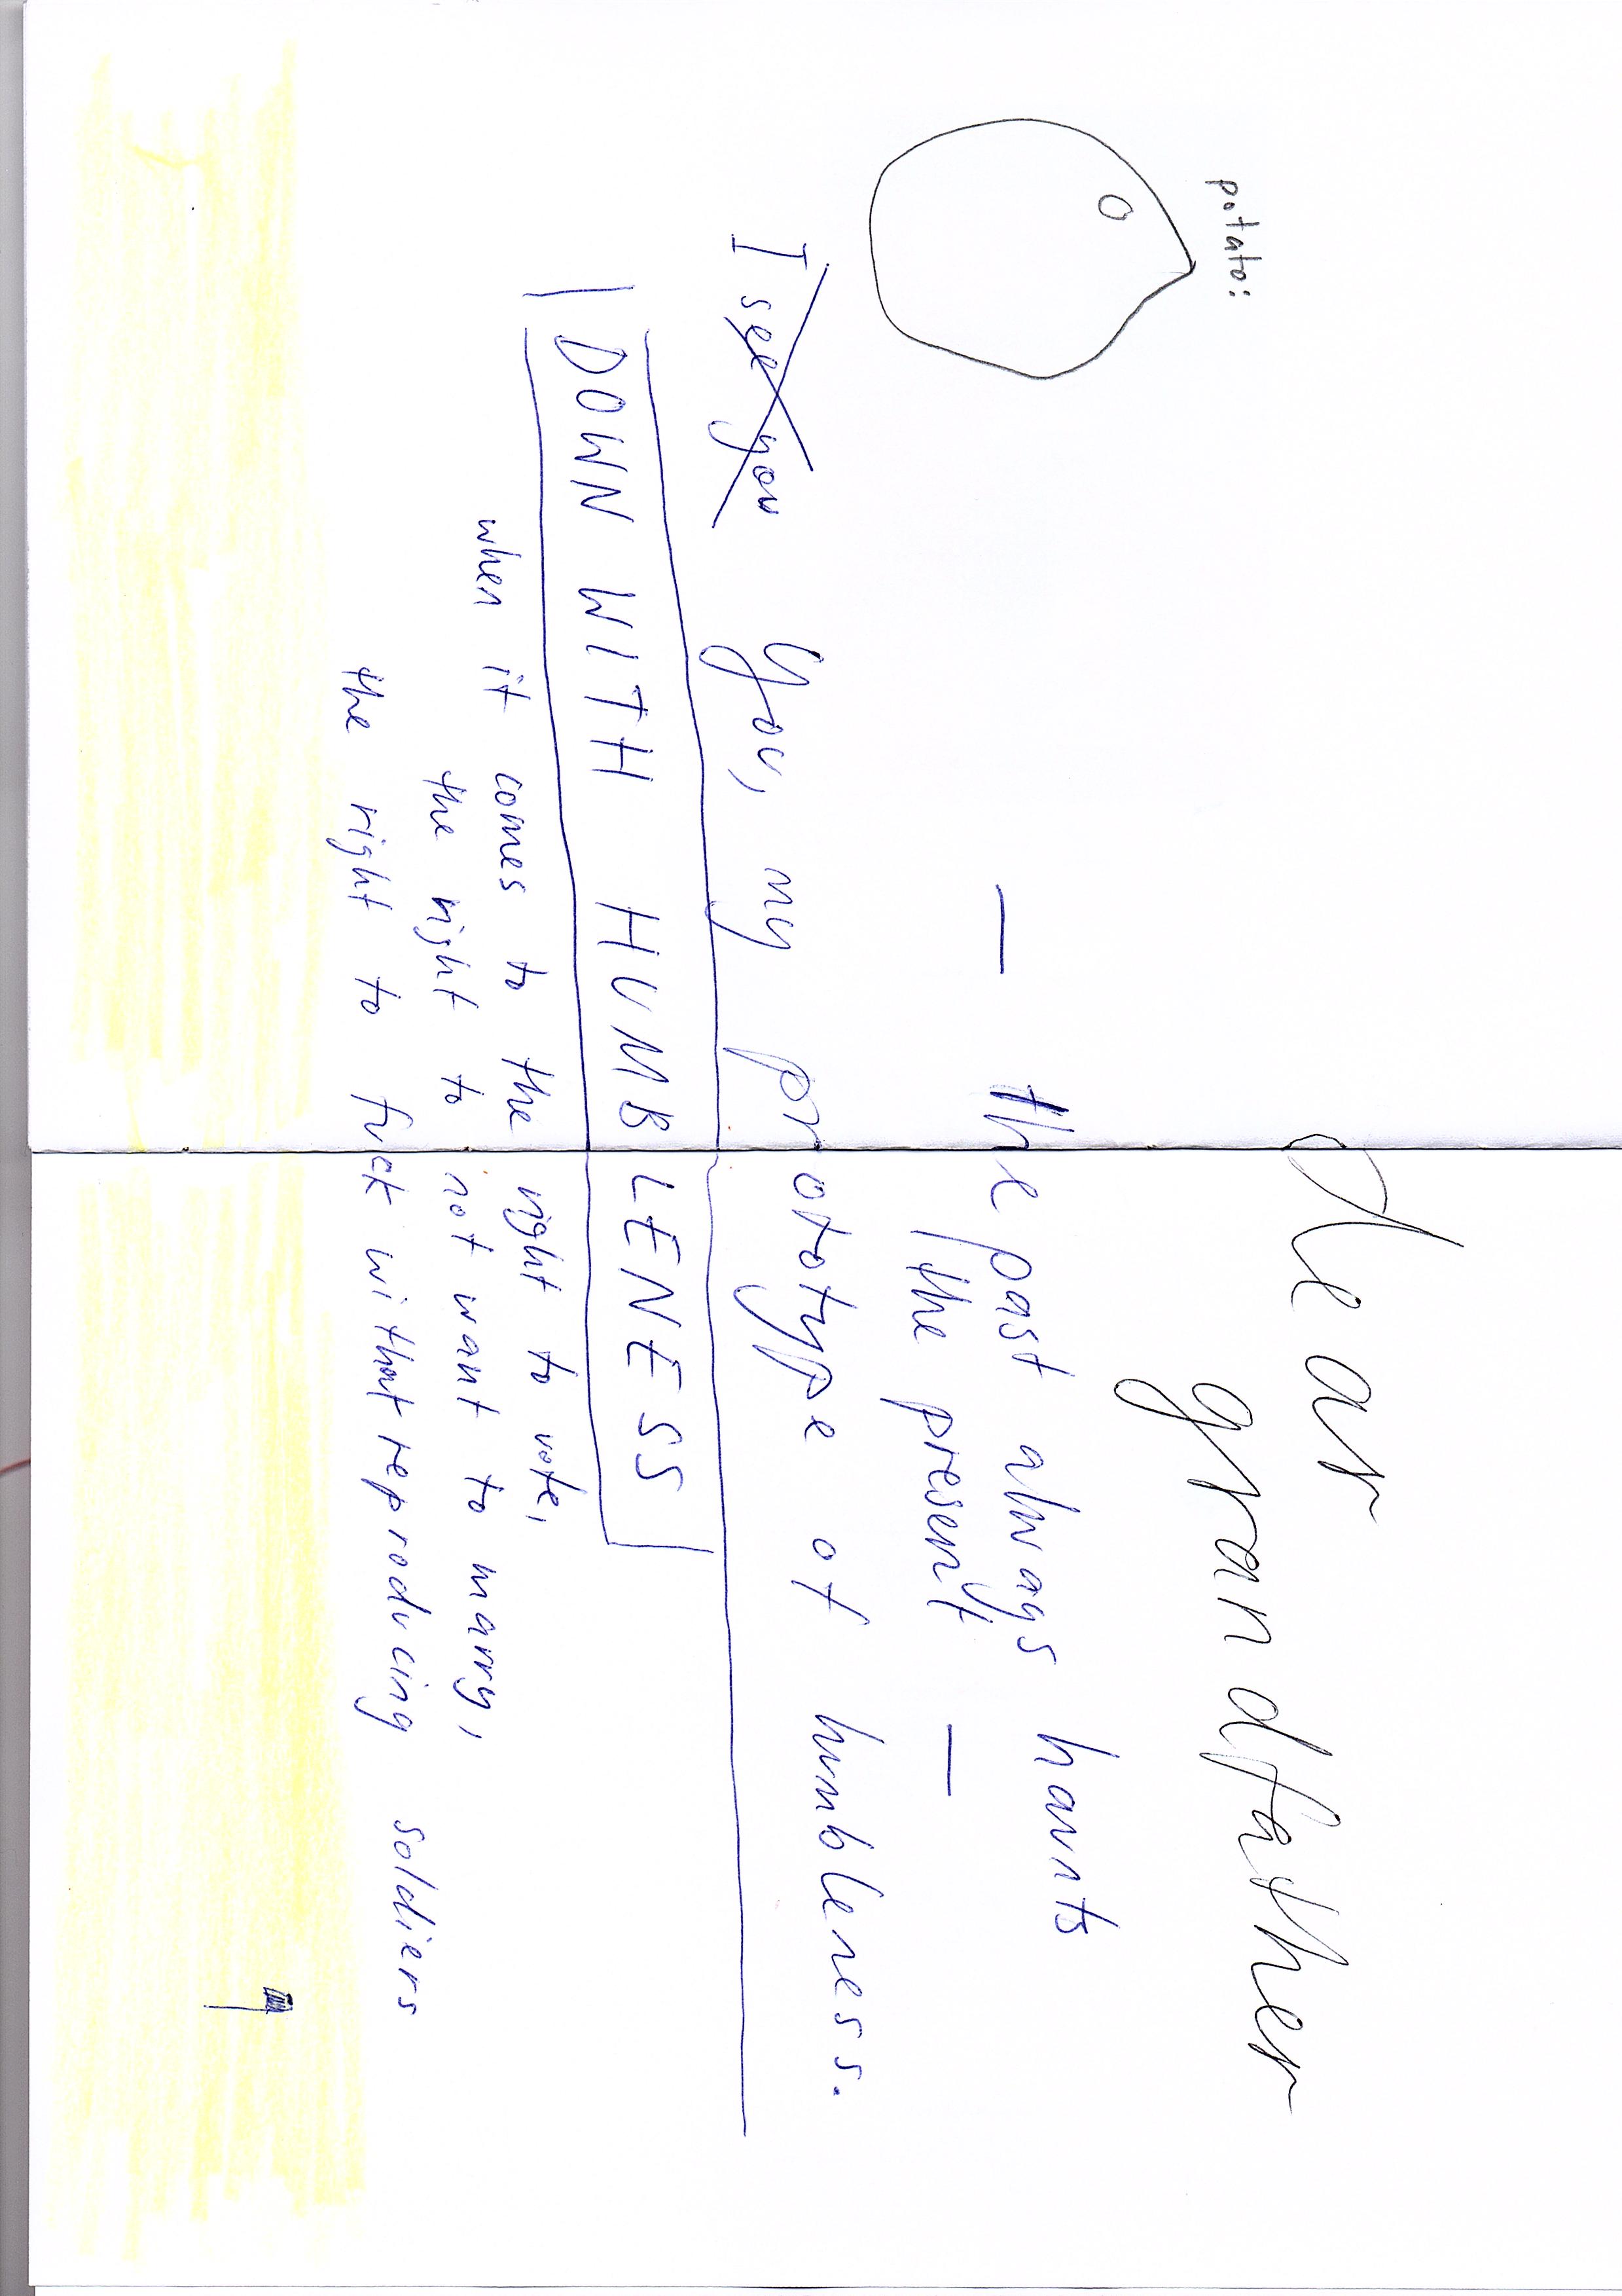 dear
grandfather
potato:
— the past always haunts
the present —
I see you You, my prototype of humbleness.
DOWN WITH HUMBLENESS
when it comes to the right to vote,
the right to not want to marry,
the right to fuck without reproducing soldiers